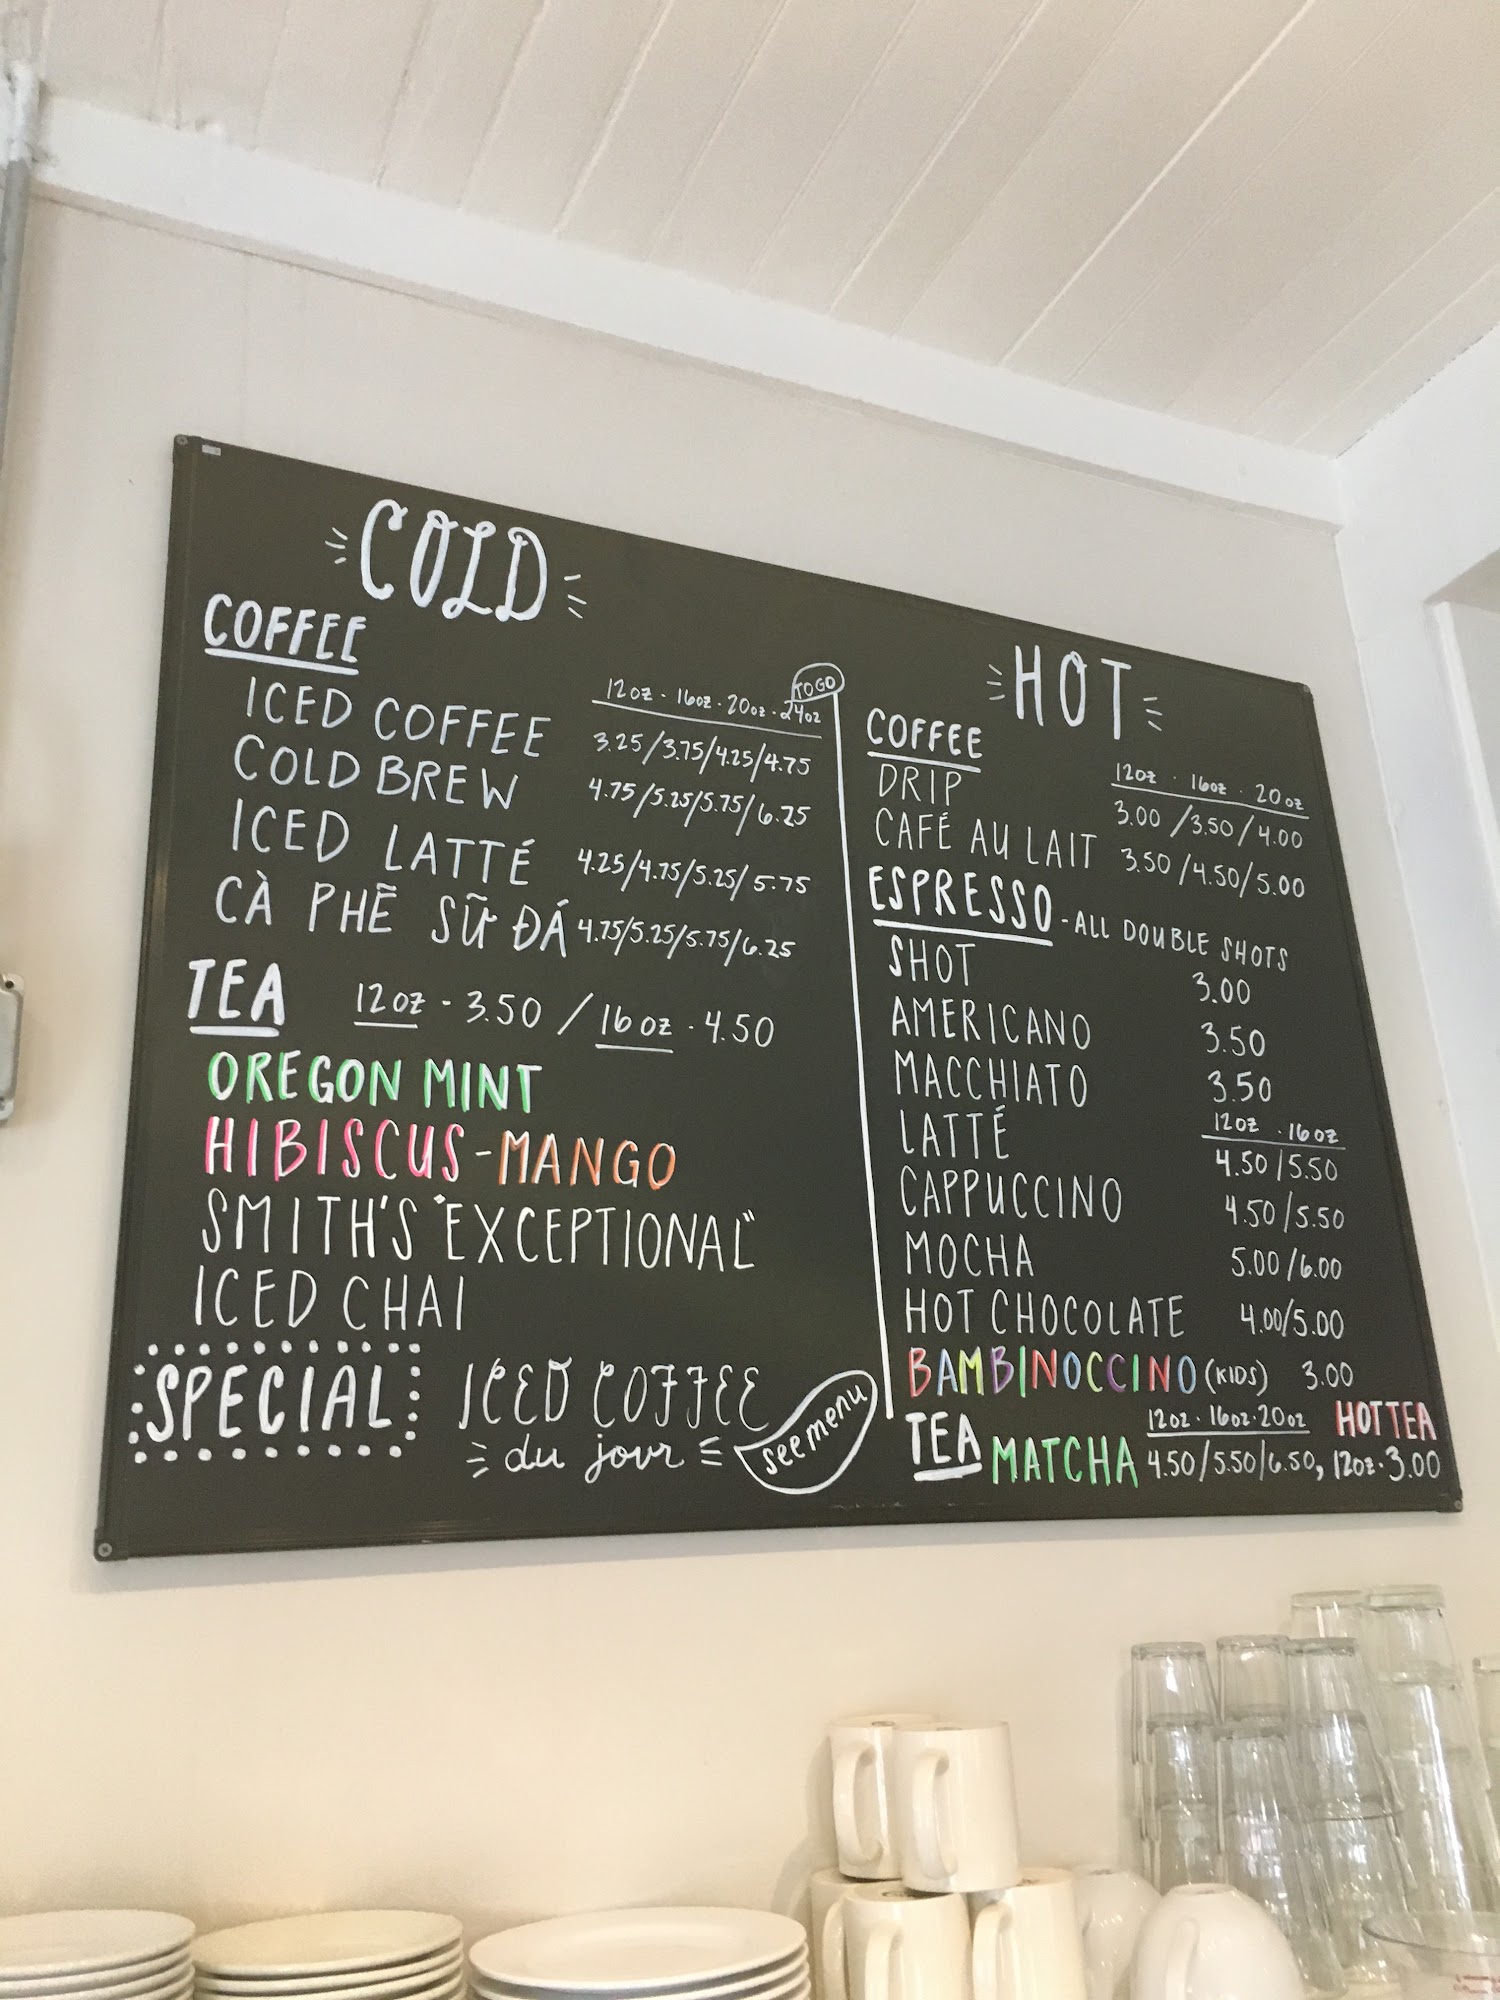 COLD
COFFEE
TO GO
12oz - 16oz - 20oz - 24oz
ICED COFFEE 3.25/3.75/4.25/4.75
COLD BREW 4.75/5.25/5.75/6.25
ICED LATTÉ 4.25/4.75/5.25/5.75
CÀ PHÊ SỮ ĐÁ 4.75/5.25/5.75/6.25
TEA 12oz - 3.50 / 16oz - 4.50
OREGON MINT
HIBISCUS-MANGO
SMITH'S "EXCEPTIONAL"
ICED CHAI
SPECIAL ICED COFFEE
du jour
see menu
HOT
COFFEE
12oz · 16oz · 20oz
DRIP 3.00/3.50/4.00
CAFÉ AU LAIT 3.50/4.50/5.00
ESPRESSO - ALL DOUBLE SHOTS
SHOT 3.00
AMERICANO 3.50
MACCHIATO 3.50
12oz · 16oz
LATTÉ 4.50/5.50
CAPPUCCINO 4.50/5.50
MOCHA 5.00/6.00
HOT CHOCOLATE 4.00/5.00
BAMBINOCCINO (KIDS) 3.00
12oz · 16oz · 20oz HOT TEA
TEA MATCHA 4.50/5.50/6.50, 12oz · 3.00